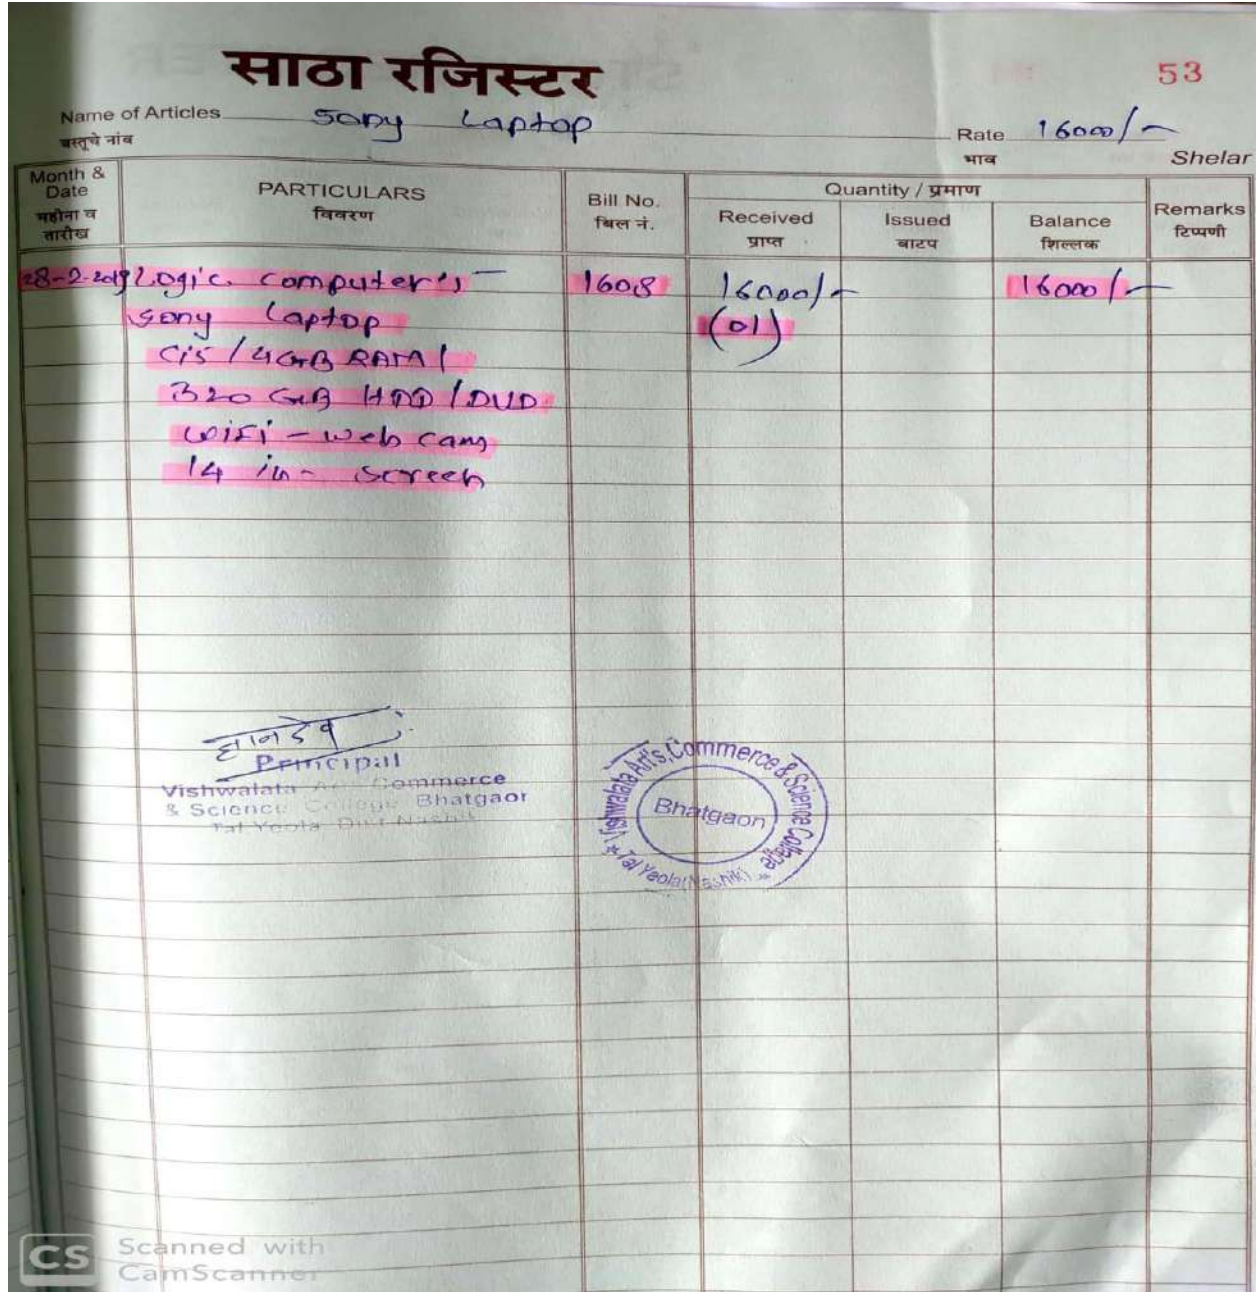 साठा रजिस्टर
53
Name of Articles Sony Laptop
वस्तूचे नांव
Rate 16000/-
भाव
Shelar
Month & Date
महीना व तारीख
PARTICULARS
विवरण
Bill No.
बिल नं.
Quantity / प्रमाण
Received
प्राप्त
Issued
बाटप
Balance
शिल्लक
Remarks
टिप्पणी
28-2-2019 Logic computer's - 1608 16000/- 16000/-
Sony Laptop (01)
Ci5 / 4GB RAM /
320 GB HDD / DVD
WiFi - web cam
14 in - screen
ज्ञानदेव
Principal
Vishwalata Commerce
& Science College Bhatgaon
Tal Yeola Dist Nashik
Vishwalata Art's, Commerce & Science College
Bhatgaon
Tal Yeola (Nashik)
CS Scanned with
CamScanner